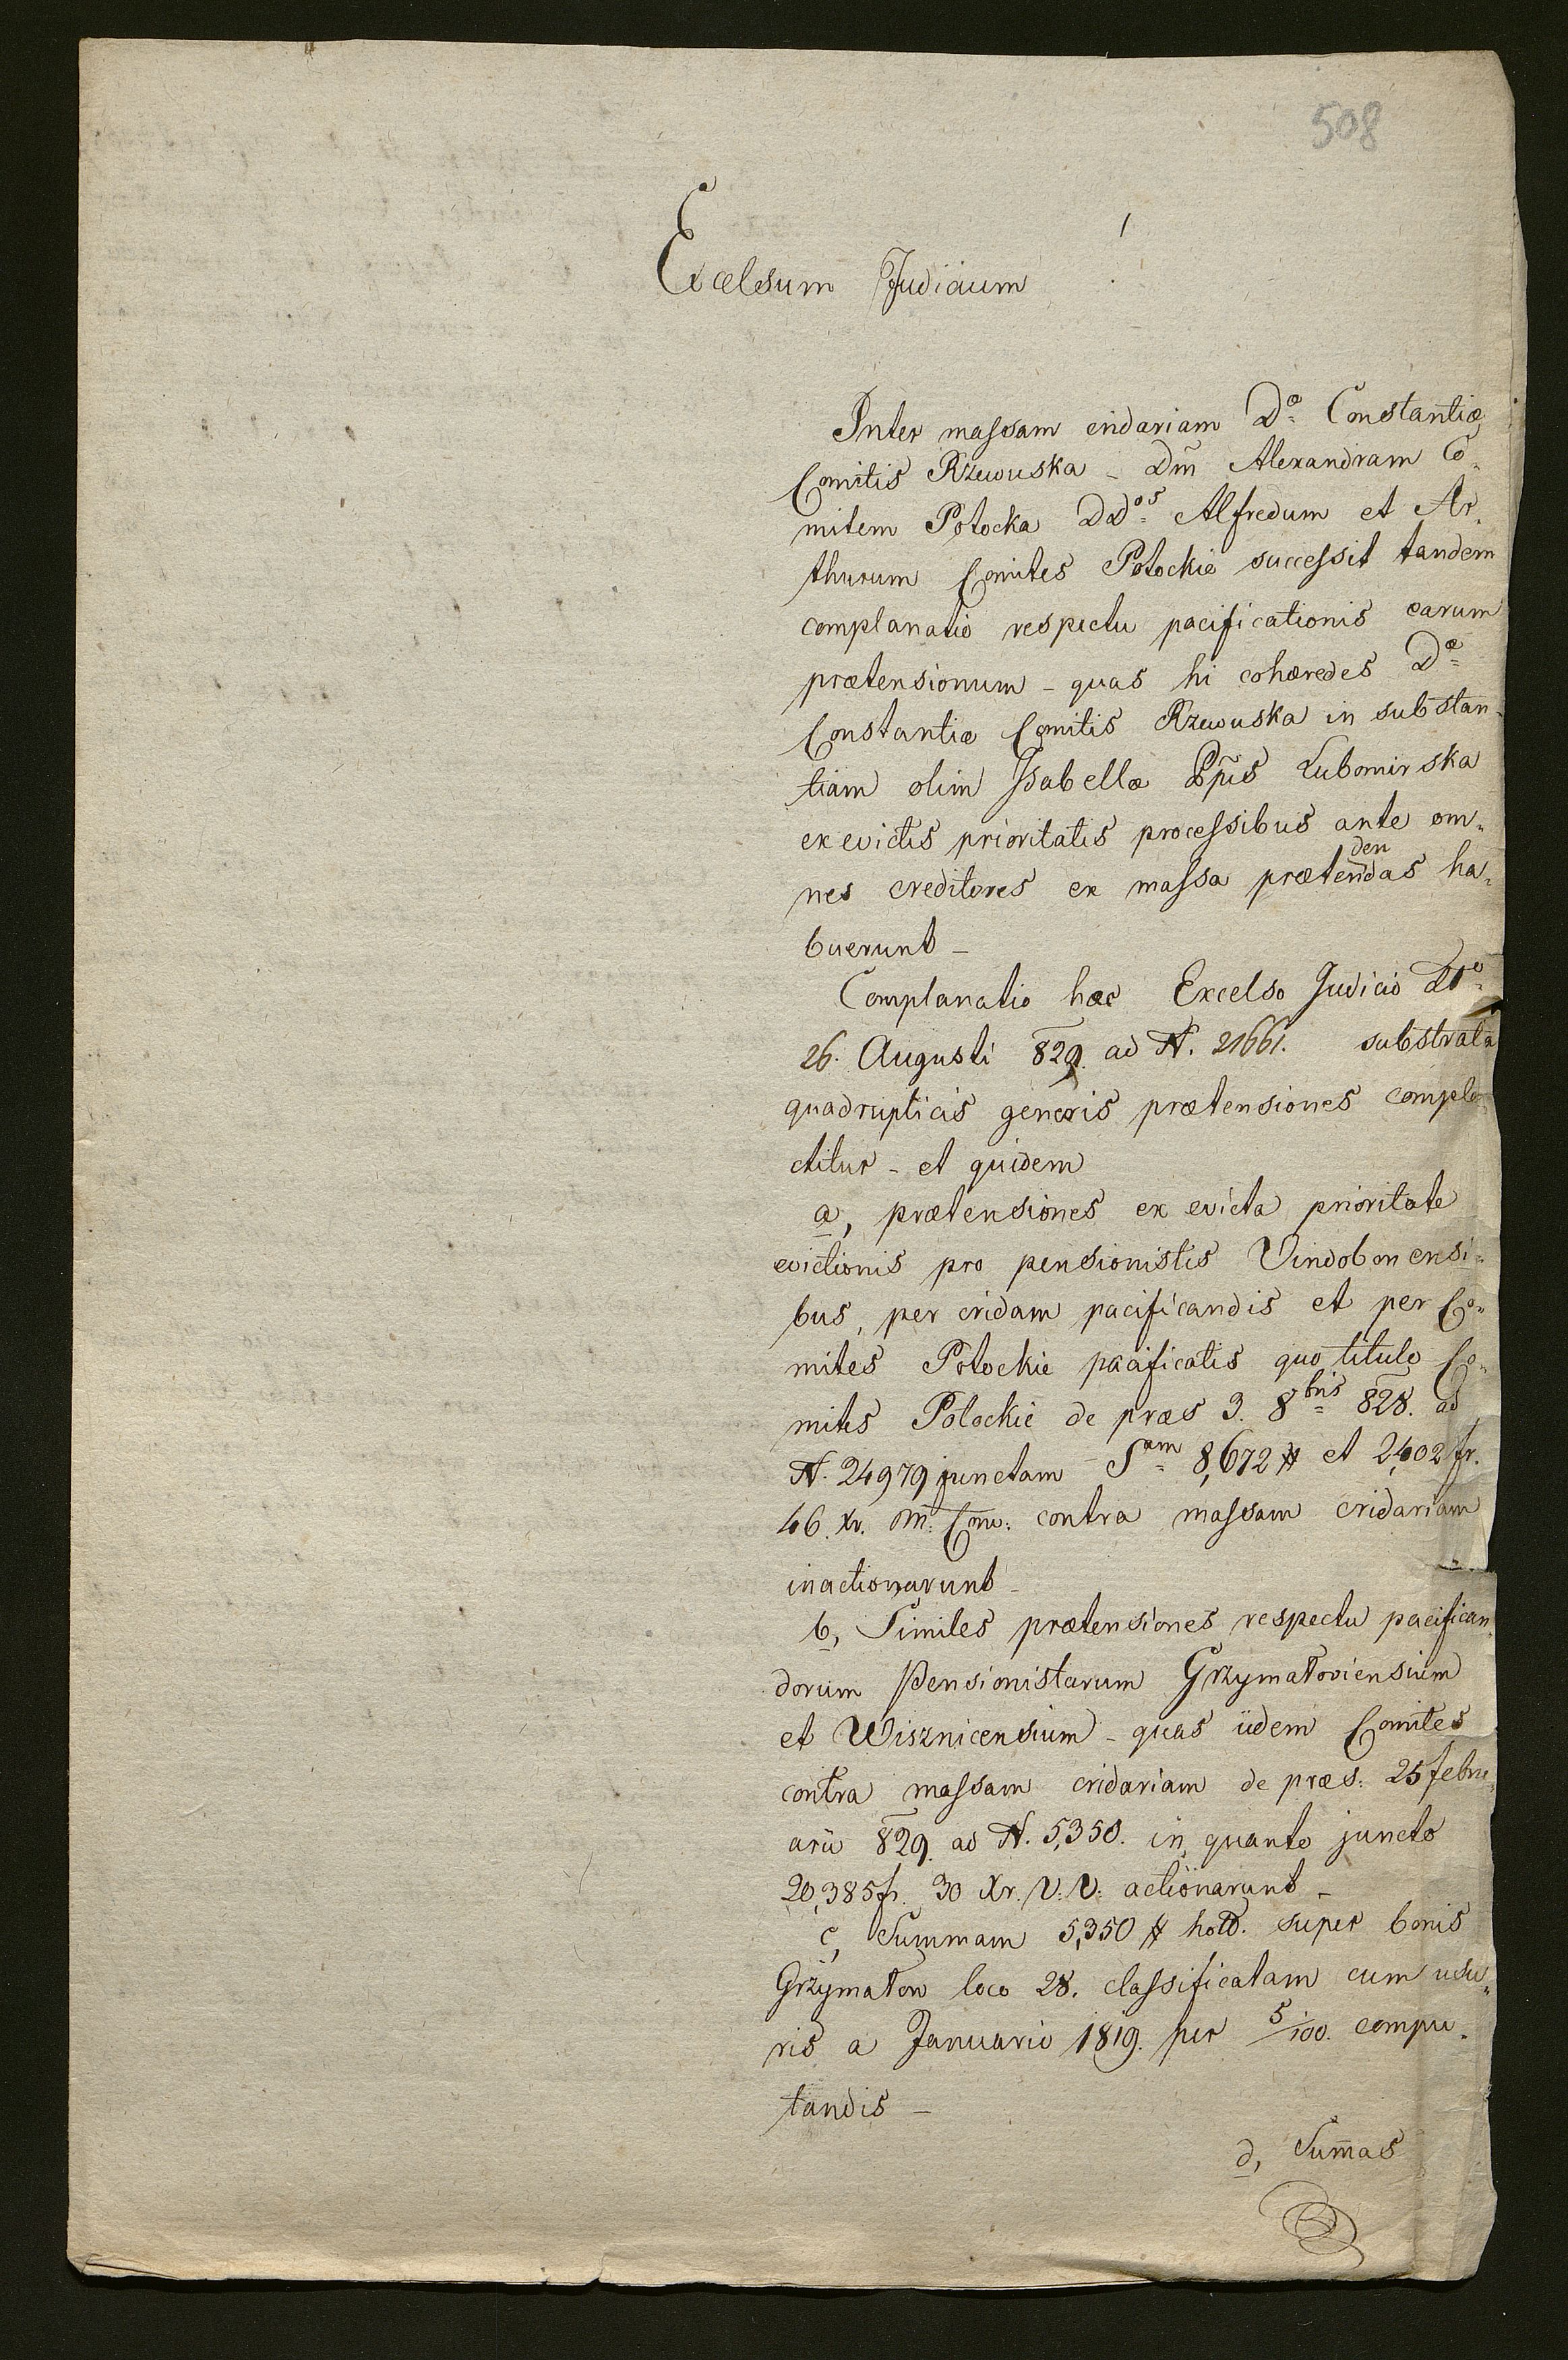 508
Excelsum Judicium
Inter massam cridariam Dæ Constantiæ
Comitis Rzewuska - Dm̃ Alexandram Co„
mitem Potocka DDos Alfredum et Ar„
thurum Comites Potockie successit tandem
complanatio respectu pacificationis earum
prætensionum - quas hi cohæredes Dæ
Constantiæ Comitis Rzewuska in substan„
tiam olim Isabellæ Ppis Lubomirska
ex evictis prioritatis processibus ante om„
nes creditores ex massa prætendendas ha„
buerunt -
Complanatio hæc Excelso Judicio Dto
26. Augusti 829. ad N. 21661. substrata
quadruplicis generis prætensiones comple
ctitur - et quidem
a, prætensiones ex evicta prioritate
evictionis pro pensionistis Vindobonensi„
bus, per cridam pacificandis et per Co„
mites Potockie pacificatis quo titulo Co„
mites Potockie de præs 3. 8bris 828. ad
N. 24979 junctam Sam 8,672 # et 2,402 fr.
46. Xr. M: Con: contra massam cridariam
inactionarunt -
b, Similes prætensiones respectu pacifican„
dorum Pensionistarum Grzymałoviensium
et Wisznicensium - quas iidem Comites
contra massam cridariam de præs: 25 febru„
arii 829. ad N. 5,350. in quanto juncto
20,385 fr. 30 Xr. V: V: actionarunt -
c, Summam 5,350 # holl. super bonis
Grzymałow loco 28. classificatam cum usu„
ris a Januario 1819. per 5/100. compu„
tandis -
d, Sum̃as